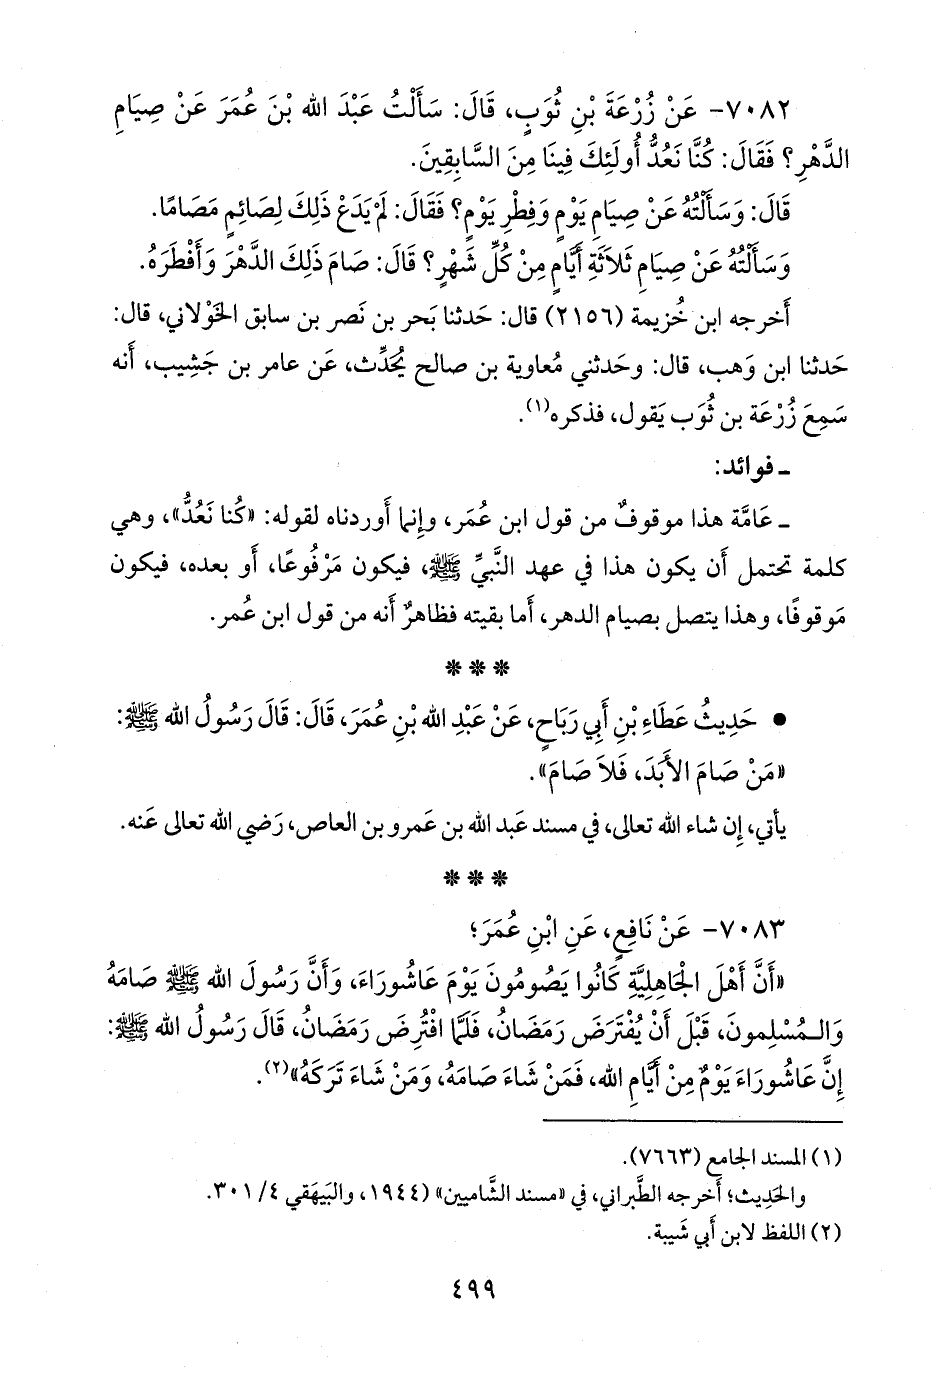 ٧٠٨٢- عَنْ زُرْعَةَ بْنِ ثُوَبٍ، قَالَ: سَأَلْتُ عَبْدَ الله بْنَ عُمَرَ عَنْ صِيَامِ
الدَّهْرِ؟ فَقَالَ: كُنَّا نَعُدُّ أُولَئِكَ فِينَا مِنَ السَّابِقِينَ.
قَالَ: وَسَأَلْتُهُ عَنْ صِيَامِ يَوْمٍ وَفِطْرِ يَوْمٍ؟ فَقَالَ: لَمْ يَدَعْ ذَلِكَ لِصَائِمٍ مَصَامًا.
وَسَأَلْتُهُ عَنْ صِيَامِ ثَلاَثَةِ أَيَّامٍ مِنْ كُلِّ شَهْرٍ؟ قَالَ: صَامَ ذَلِكَ الدَّهْرَ وَأَفْطَرَهُ.
أَخرجه ابن خُزيمة (٢١٥٦) قال: حَدثنا بَحر بن نَصر بن سابق الخَوْلاني، قال:
حَدثنا ابن وَهب، قال: وحَدثني مُعاوية بن صالح يُحَدِّث، عَن عامر بن جَشِيب، أَنه
سَمِعَ زُرْعَة بن ثُوَب يَقول، فذكره(١).
ـ فوائد:
ـ عَامَّة هذا موقوفٌ من قول ابن عُمَر، وإِنما أَوردناه لقوله: «كُنا نَعُدُّ»، وهي
كلمة تحتمل أَن يكون هذا في عهد النَّبيِّ ﷺ، فيكون مَرْفُوعًا، أَو بعده، فيكون
مَوقوفًا، وهذا يتصل بصيام الدهر، أَما بقيته فظاهرٌ أَنه من قول ابن عُمر.
* * *
● حَدِيثُ عَطَاءِ بْنِ أَبِي رَبَاحٍ، عَنْ عَبْدِ الله بْنِ عُمَرَ، قَالَ: قَالَ رَسُولُ الله ﷺ:
«مَنْ صَامَ الأَبَدَ، فَلاَ صَامَ».
يأتي، إِن شاء الله تعالى، في مسند عَبد الله بن عَمرو بن العاص، رَضي الله تعالى عَنه.
* * *
٧٠٨٣- عَنْ نَافِعٍ، عَنِ ابْنِ عُمَرَ؛
«أَنَّ أَهْلَ الْجَاهِلِيَّةِ كَانُوا يَصُومُونَ يَوْمَ عَاشُورَاءَ، وَأَنَّ رَسُولَ الله ﷺ صَامَهُ
وَالـمُسْلِمونَ، قَبْلَ أَنْ يُفْتَرَضَ رَمَضَانُ، فَلَمَّا افْتُرِضَ رَمَضَانُ، قَالَ رَسُولُ الله ﷺ:
إِنَّ عَاشُورَاءَ يَوْمٌ مِنْ أَيَّامِ الله، فَمَنْ شَاءَ صَامَهُ، وَمَنْ شَاءَ تَرَكَهُ»(٢).
(١) المسند الجامع (٧٦٦٣).
والحَدِيث؛ أَخرجه الطَّبراني، في «مسند الشَّاميين» (١٩٤٤، والبَيهَقي ٤/ ٣٠١.
(٢) اللفظ لابن أَبي شَيبة.
٤٩٩